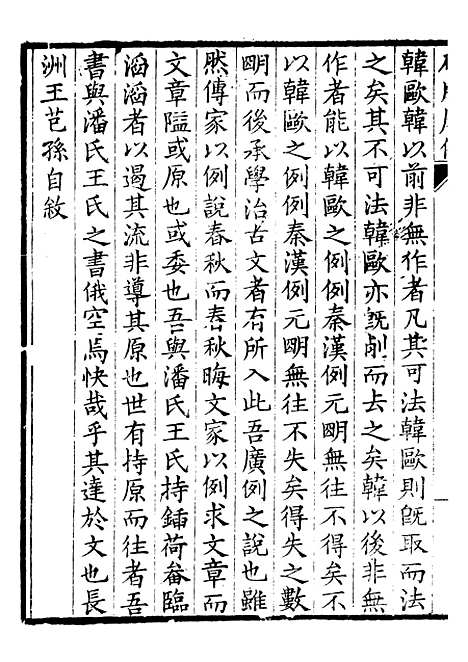 韓歐韓以前非無作者凡其可法韓歐則旣取而法
之矣其不可法韓歐亦旣削而去之矣韓以後非無
作者能以韓歐之例例秦漢例元明無往不得矣不
以韓歐之例例秦漢例元明無往不失矣得失之數
明而後承學治古文者有所入此吾廣例之說也雖
然傳家以例說春秋而春秋晦文家以例求文章而
文章隘或原也或委也吾與潘氏王氏持鍤荷畚臨
滔滔者以遏其流非導其原也世有持原而往者吾
書與潘氏王氏之書俄空焉快哉乎其達於文也長
洲王芑孫自敘